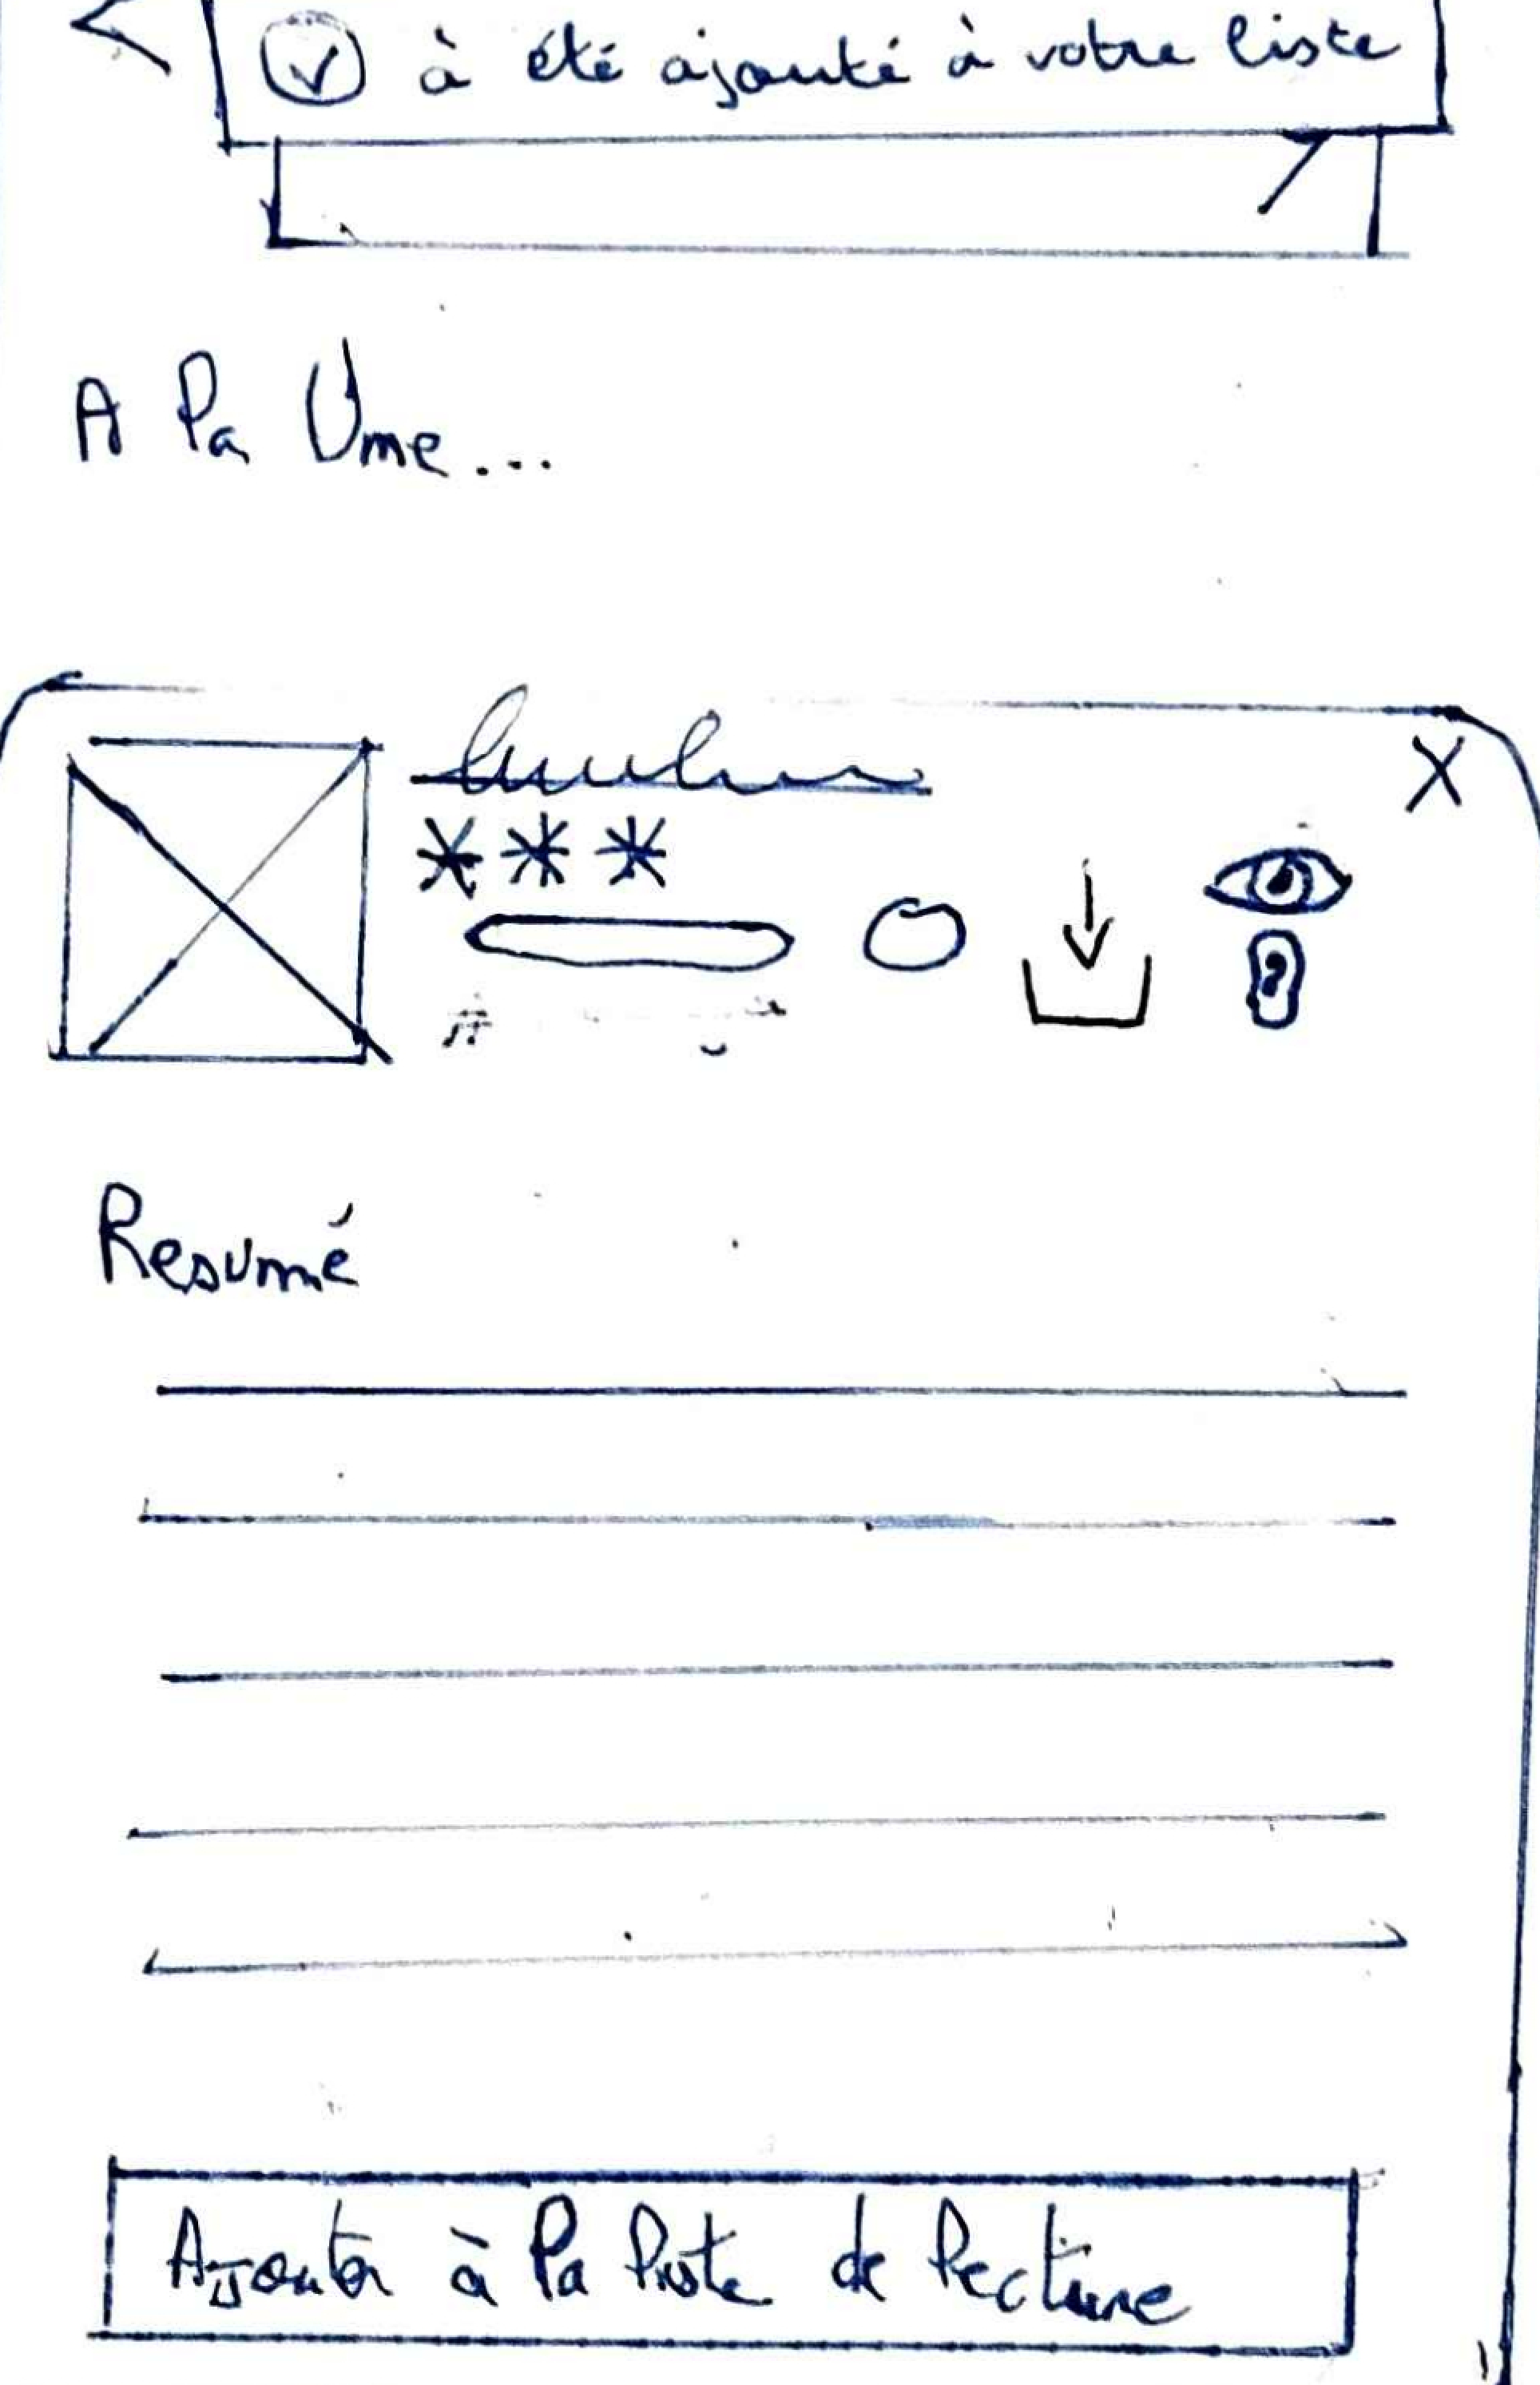 à été ajouté à votre liste
A la Une...
Resumé
Ajouter à la liste de lecture